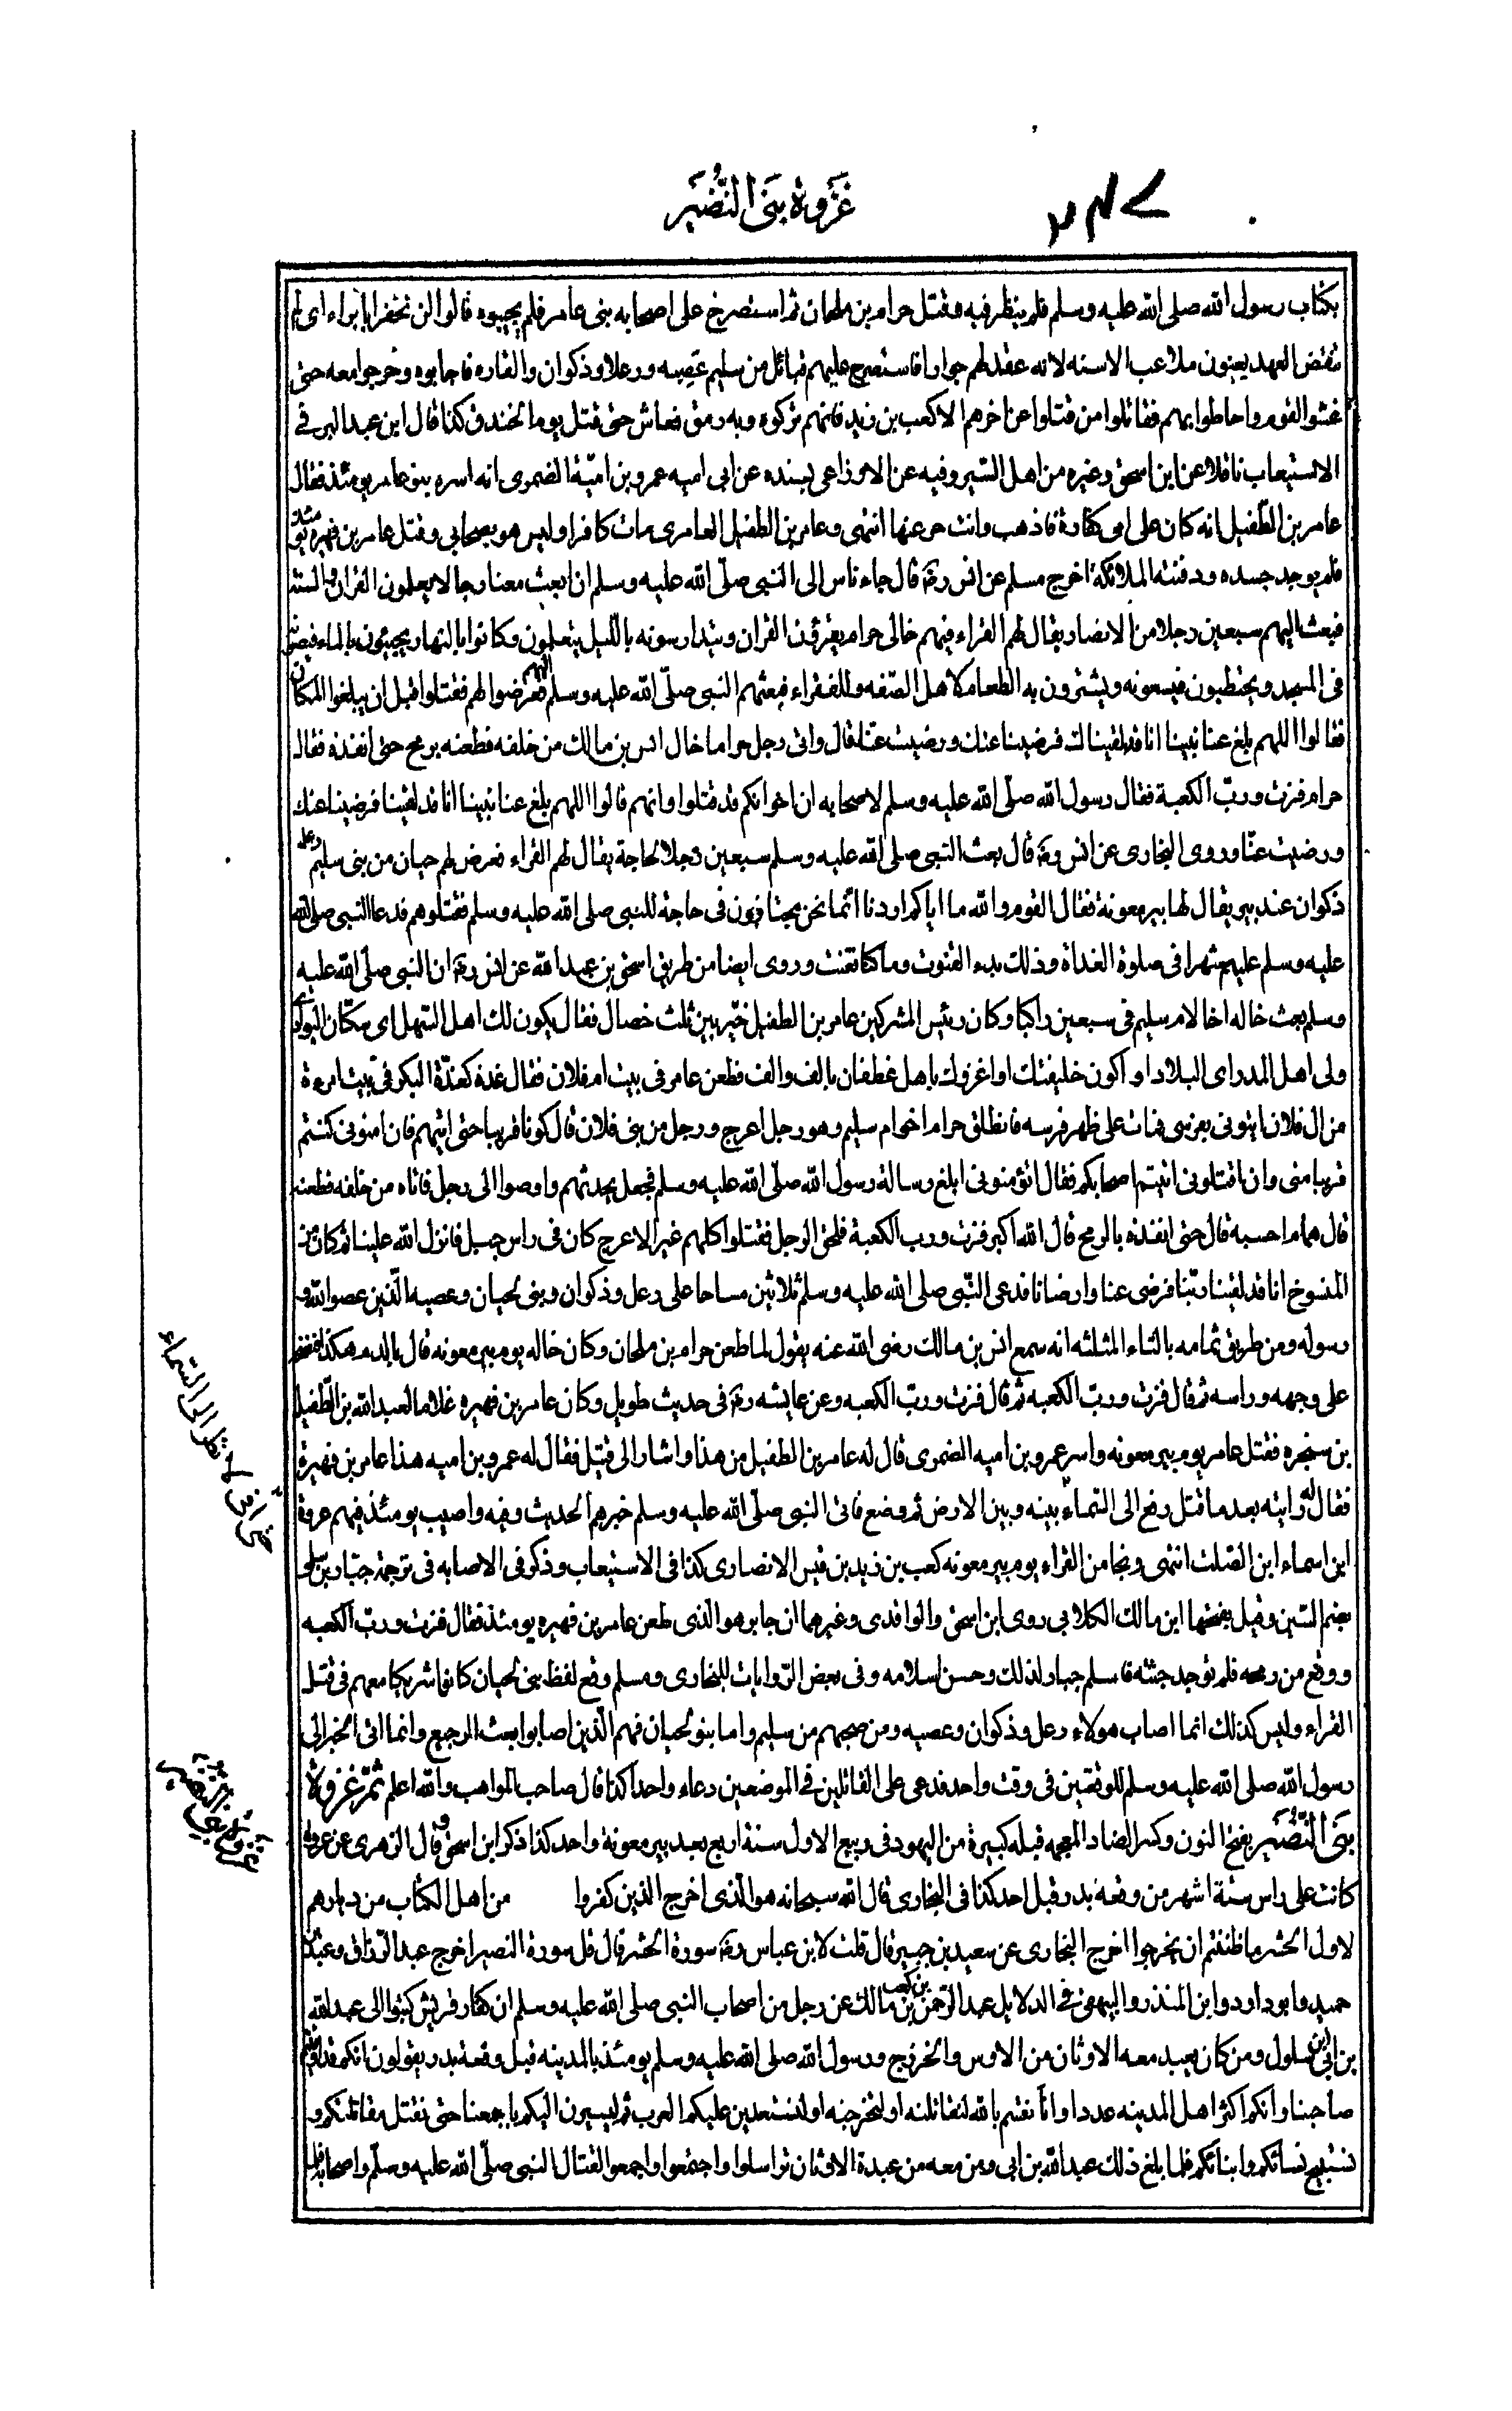 غزوة بنى النضير
بكتاب رسول الله صلى الله عليه وسلم فلم ينظر فيه وقتل حرام بن ملحان ثم استصرخ على اصحابه بنى عامر فلم يجيبوه قالوا لن نخفر ابا براء اى لم
نقض العهد يعنون ملاعب الاسنه لانه عقد لهم جوارا فاستصرخ عليهم قبائل من سليم عصيه ورعلا وذكوان والقاره فاجابوه وخرجوا معه حتى
غشوا القوم واحاطوا بهم فقاتلوا من قتلوا عن اخرهم الا كعب بن زيد فانهم تركوه وبه رمق فعاش حتى قتل يوم الخندق كذا قال ابن عبد البر فى
الاستيعاب ناقلا عن ابن اسحق وغيره من اهل السير وفيه عن الاوزاعى بسنده عن ابى اميه عمرو بن اميّة الضمرى انه اسره بنو عامر يومئذ فقال
عامر بن الطفيل انه كان على امى كفارة فاذهب وانت حر عنها انتهى وعامر بن الطفيل العامرى مات كافرا وليس هو بصحابى وقتل عامر بن فهيره يومئذ
فلم يوجد جسده ودفنته الملائكة اخرج مسلم عن انس رضـ قال جاء ناس الى النبى صلى الله عليه وسلم ان ابعث معنا رجالا يعلمون القران والسنة
فبعث اليهم سبعين رجلا من الانصار يقال لهم القراء فيهم خالى حرام يقرؤن القران ويتدارسونه بالليل يتعلمون وكانوا بالنهار يجيبون بالماء فيضعونه
فى المسجد ويحتطبون فيبيعونه ويشترون به الطعام لاهل الصفه وللفقراء فبعثهم النبى صلى الله عليه وسلم اليهم فعرضوا لهم فقتلوا قبل ان يبلغوا المكان
فقالوا اللهم بلغ عنا نبينا انا قد لقيناك فرضينا عنك ورضيت عنا قال واتى رجل حراما خال انس بن مالك من خلفه فطعنه برمح حتى انفذه فقال
حرام فزت ورب الكعبة فقال رسول الله صلى الله عليه وسلم لاصحابه ان اخوانكم قد قتلوا وانهم قالوا اللهم بلغ عنا نبينا انا قد لقينا فرضينا عنك
ورضيت عنّا وروى البخارى عن انس رضـ قال بعث النبى صلى الله عليه وسلم سبعين رجلا لحاجة يقال لهم القراء فعرض لهم حيان من بنى سليم رعل
ذكوان عند بير يقال لها بير معونة فقال القوم والله ما اياكم اردنا انما نحن مجتازون فى حاجة للنبى صلى الله عليه وسلم فقتلوهم فدعا النبى صلى الله
عليه وسلم عليهم شهرا فى صلوة الغداة وذلك بدء القنوت وما كنا نقنت وروى ايضا من طريق اسحق بن عبد الله عن انس رضـ ان النبى صلى الله عليه
وسلم بعث خاله اخا لام سليم فى سبعين راكبا وكان رئيس المشركين عامر بن الطفيل خيّر بين ثلث خصال فقال يكون لك اهل السهل اى سكان البوادى
ولى اهل المدر اى البلاد او اكون خليفتك او اغزوك باهل غطفان بالف والف فطعن عامر فى بيت ام فلان فقال غدة كغدّة البكر فى بيت امرءة
من ال فلان ايتونى بفرسى فمات على ظهر فرسه فانطلق حرام اخو ام سليم وهو رجل اعرج ورجل من بنى فلان قال كونا قريبا حتى اتيهم فان امنونى كنتم
قريبا منى وان اقتلونى اتيتم اصحابكم فقال اتؤمنونى ابلغ رسالة رسول الله صلى الله عليه وسلم فجعل يحدثهم واوصوا الى رجل فاتاه من خلفه فطعنه
قال همام احسبه قال حتى انفذه بالرمح قال الله اكبر فزت ورب الكعبة فلحق الرجل فقتلوا كلهم غير الاعرج كان فى راس جبل فانزل الله علينا ثم كان من
المنسوخ انا قد لقينا ربّنا فرضى عنا وارضانا فدعى النّبى صلى الله عليه وسلم ثلاثين صباحا على رعل وذكوان وبنى لحيان وعصيه الذين عصوا الله و
رسوله ومن طريق ثمامه بالثاء المثلثه انه سمع انس بن مالك رضى الله عنه يقول لما طعن حرام بن ملحان وكان خاله يوم بير معونه قال بالدم هكذا فنضحه
على وجهه وراسه ثم قال فزت وربّ الكعبه ثم قال فزت وربّ الكعبه وعن عايشه رضـ فى حديث طويل وكان عامر بن فهيره غلاما لعبد الله بن الطفيل
بن سنجره فقتل عامر يوم بير معونه واسر عمرو بن اميه الضمرى قال له عامر بن الطفيل من هذا واشار الى قتيل فقال له عمرو بن اميه هذا عامر بن فهيرة
فقال له رايته بعد ما قتل رفع الى السماء بينه وبين الارض ثم وضع فاتى النبى صلى الله عليه وسلم خبرهم الحديث وفيه واصيب يومئذ فيهم عروة
ابن اسماء ابن الصّلت انتهى ونجا من القراء يوم بير معونه كعب بن زيد بن قيس الانصارى كذا فى الاستيعاب وذكر فى الاصابه فى ترجمة جبّار بن سلمى
بضم السّين وقيل بفتحها ابن مالك الكلابى روى ابن اسحق والواقدى وغيرهما ان جابر هو الذى طعن عامر بن فهيره يومئذ فقال فزت وربّ الكعبه
ووقع من رمحه فلم توجد جثته فاسلم جبار لذلك وحسن اسلامه وفى بعض الرّوايات للبخارى ومسلم وقع لفظ بنى لحيان كانوا شريكا معهم فى قتل
القراء وليس كذلك انما اصاب هولاء رعل وذكوان وعصيه ومن صحبهم من سليم واما بنو لحيان فهم الذين اصابوا بعث الرجيع وانما اتى الخبر الى
رسول الله صلى الله عليه وسلم للوقعتين فى وقت واحد فدعى على القاتلين فى الموضعين دعاء واحدا كذا قال صاحب المواهب والله اعلم ثمّ غزوة
بنى النّضير بفتح النون وكسر الضاد المعجمه قبله كبيرة من اليهود فى ربيع الاول سنة اربع بعد بير معونة واحد كذا ذكر ابن اسحق وقال الزهرى عن عروه
كانت على راس ستة اشهر من وقعة بدر قبل احد كذا فى البخارى قال الله سبحانه هو الذى اخرج الذين كفروا من اهل الكتاب من ديارهم
لاول الحشر ما ظننتم ان يخرجوا اخرج البخارى عن سعيد بن جبير قال قلت لابن عباس رضـ سورة الحشر قال قل سورة النصير اخرج عبد الرزاق وعبد بن
حميد وابو داود وابن المنذر والبيهقى فى الدلايل عبد الرّحمن بن كعب بن مالك عن رجل من اصحاب النبى صلى الله عليه وسلم ان كفار قريش كتبوا الى عبد الله
بن ابى بن سلول ومن كان يعبد معه الاوثان من الاوس والخزرج ورسول الله صلى الله عليه وسلم يومئذ بالمدينه قبل وقعة بدر يقولون انكم قد اويتم
صاحبنا وانكم اكثر اهل المدينه عددا وانا نقسم بالله لتقاتلنه او لتخرجنه او لنستعدين عليكم العرب ثم ليسيرن اليكم باجمعنا حتى نقتل مقاتلتكم و
نستبيح نسائكم وابنائكم فلما بلغ ذلك عبد الله بن ابى ومن معه من عبدة الاوثان تراسلوا واجتمعوا واجمعوا القتال النبى صلى الله عليه وسلم واصحابه فلما
حتى انى لانظر الى السماء
غزوة بنى النضير